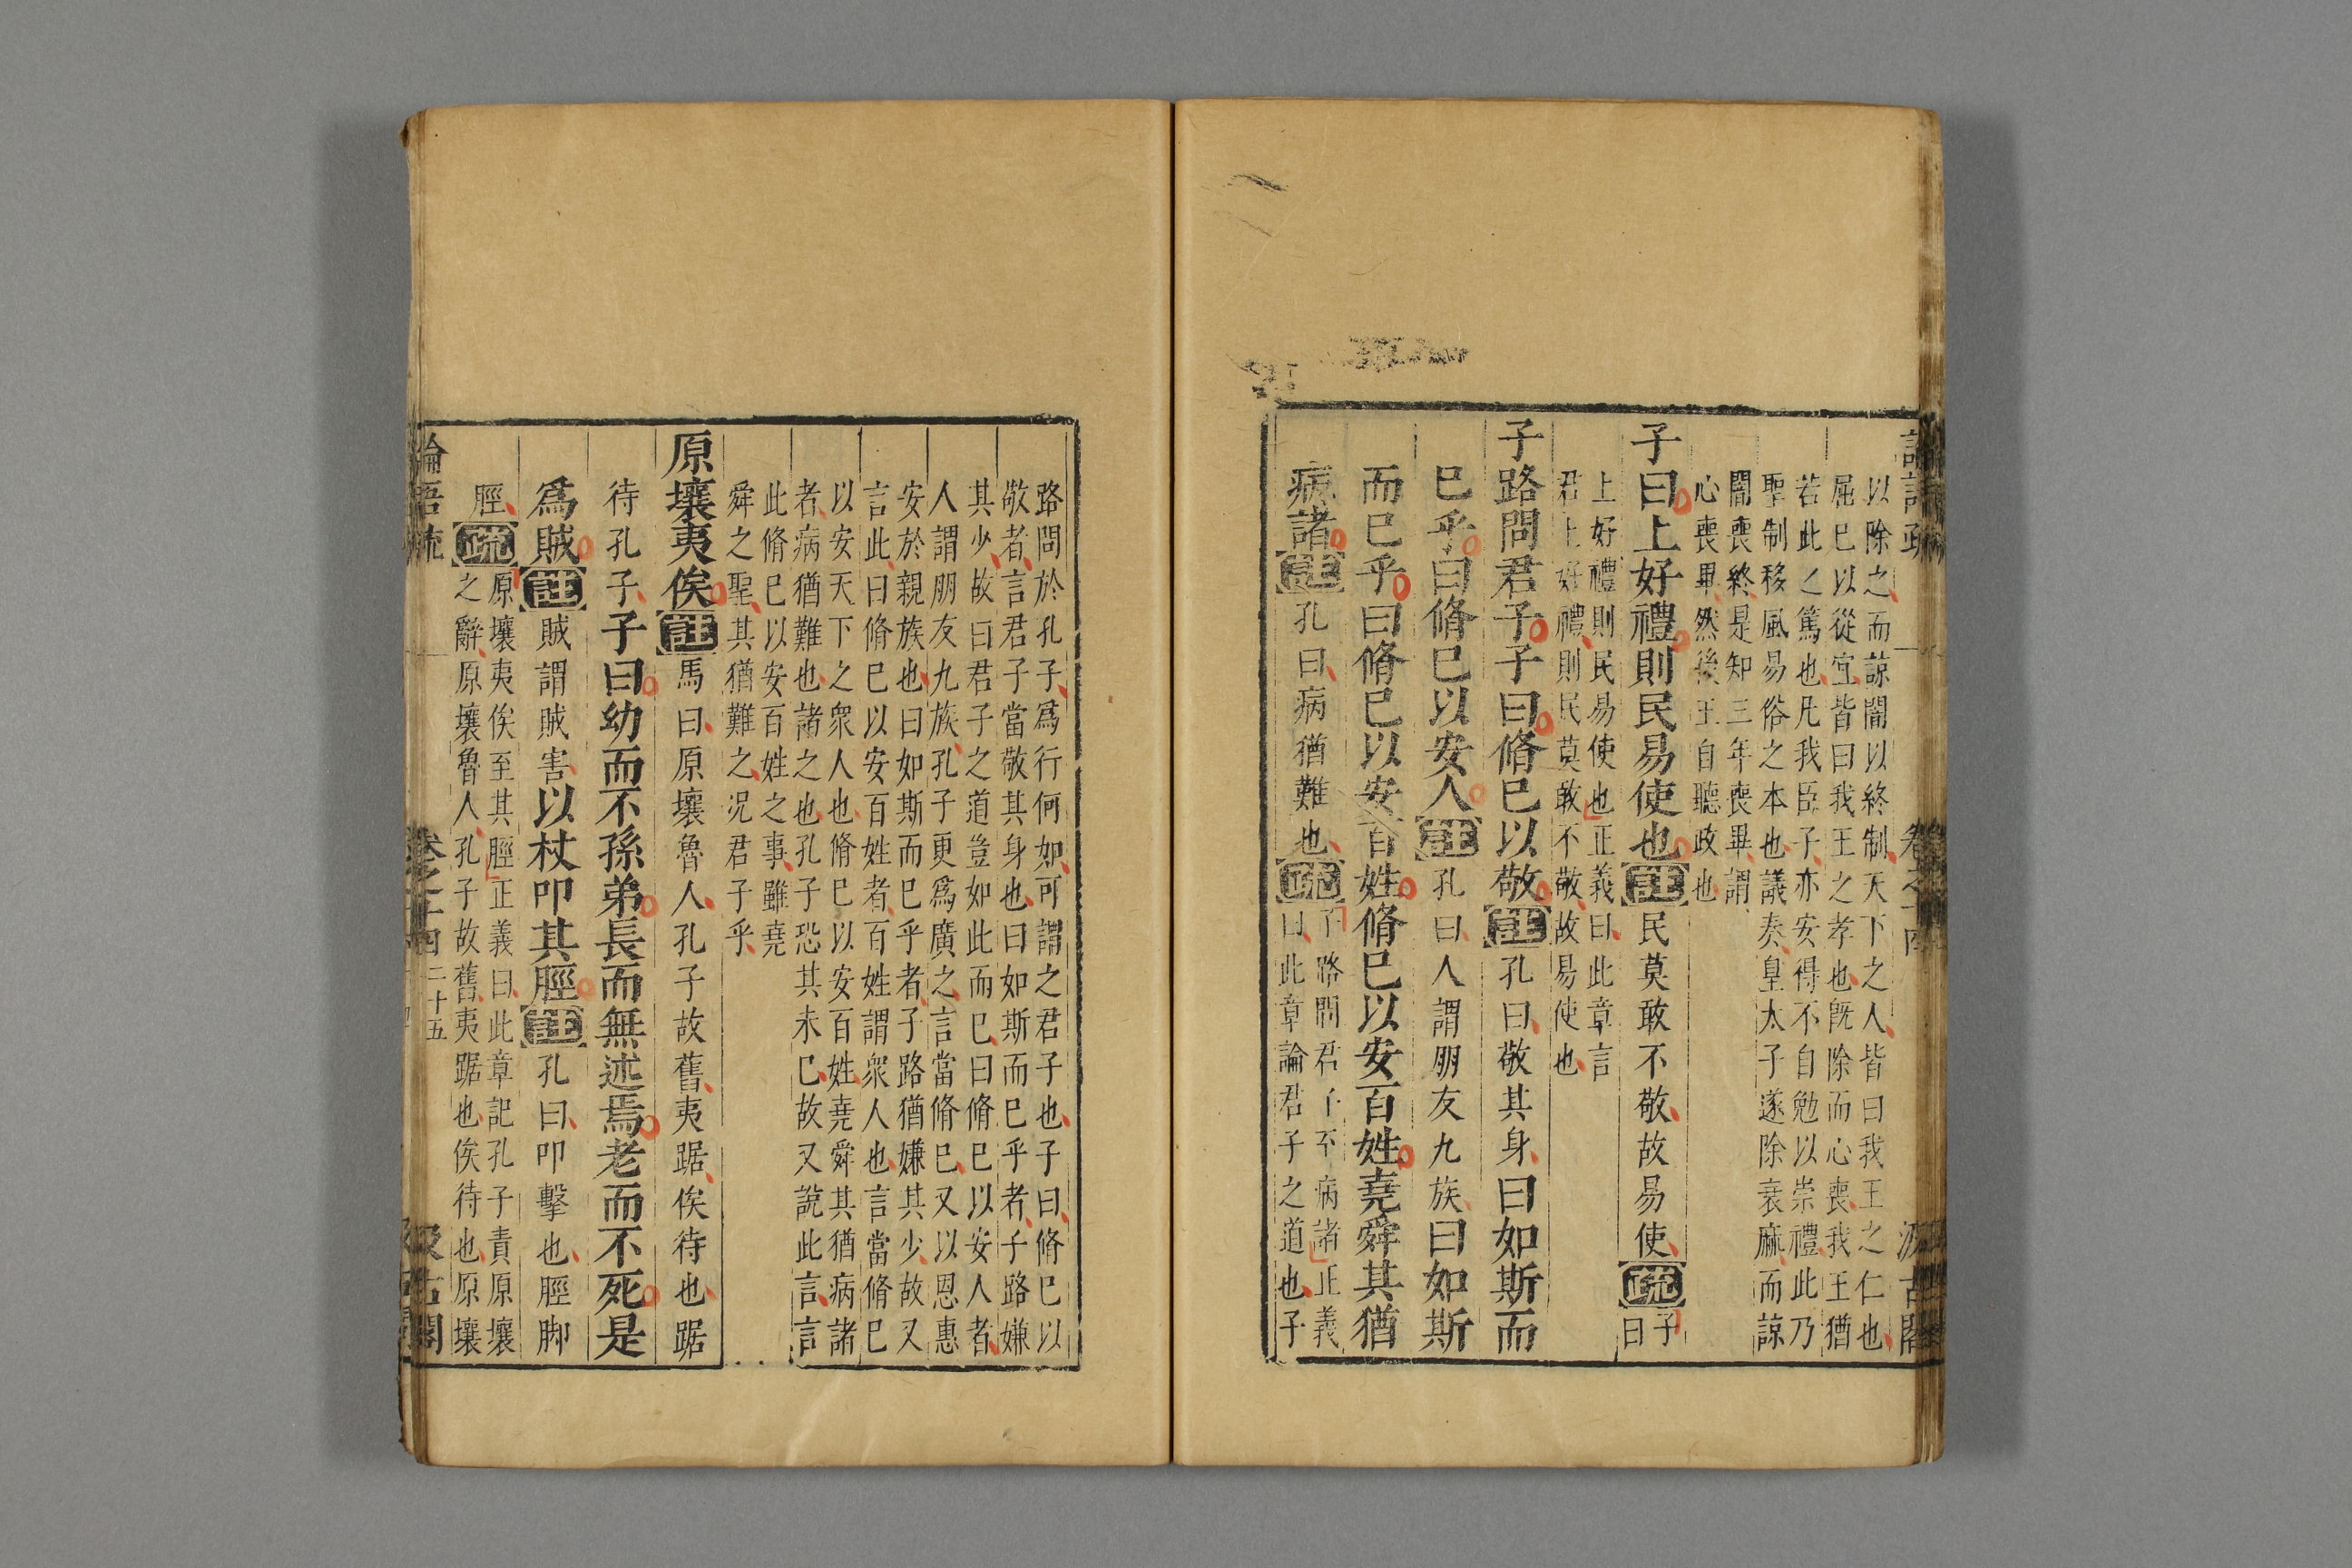 以除之而諒闇以終制天下之人皆曰我王之仁也
屈已以從宜皆曰我王之孝也旣除而心喪我王猶
若此之篤也凡我臣子亦安得不自勉以崇禮此乃
聖制移風易俗之本也議奏皇太子遂除衰麻而諒
闇喪終是知三年喪畢謂
心喪畢然後王自聽政也
子曰上好禮則民易使也註民莫敢不敬故易使疏子
曰
上好禮則民易使也正義曰此章言
君上好禮則民莫敢不敬故易使也
子路問君子子曰脩已以敬註孔曰敬其身曰如斯而
已乎曰脩已以安人註孔曰人謂朋友九族曰如斯
而已乎曰脩已以安百姓脩已以安百姓堯舜其猶
病諸註孔曰病猶難也疏子路問君子至病諸正義
曰此章論君子之道也子
路問於孔子爲行何如可謂之君子也子曰脩已以
敬者言君子當敬其身也曰如斯而已乎者子路嫌
其少故曰君子之道豈如此而已曰脩已以安人者
人謂朋友九族孔子更爲廣之言當脩已又以恩惠
安於親族也曰如斯而已乎者子路猶嫌其少故又
言此曰脩已以安百姓者百姓謂衆人也言當脩已
以安天下之衆人也脩已以安百姓堯舜其猶病諸
者病猶難也諸之也孔子恐其未已故又說此言言
此脩已以安百姓之事雖堯
舜之聖其猶難之况君子乎
原壤夷俟註馬曰原壤魯人孔子故舊夷踞俟待也踞
待孔子子曰幼而不孫弟長而無述焉老而不死是
爲賊註賊謂賊害以杖叩其脛註孔曰叩擊也脛脚
脛疏原壤夷俟至其脛正義曰此章記孔子責原壤
之辭原壤魯人孔子故舊夷踞也俟待也原壤
論語疏 卷之十四 二十五 汲古閣